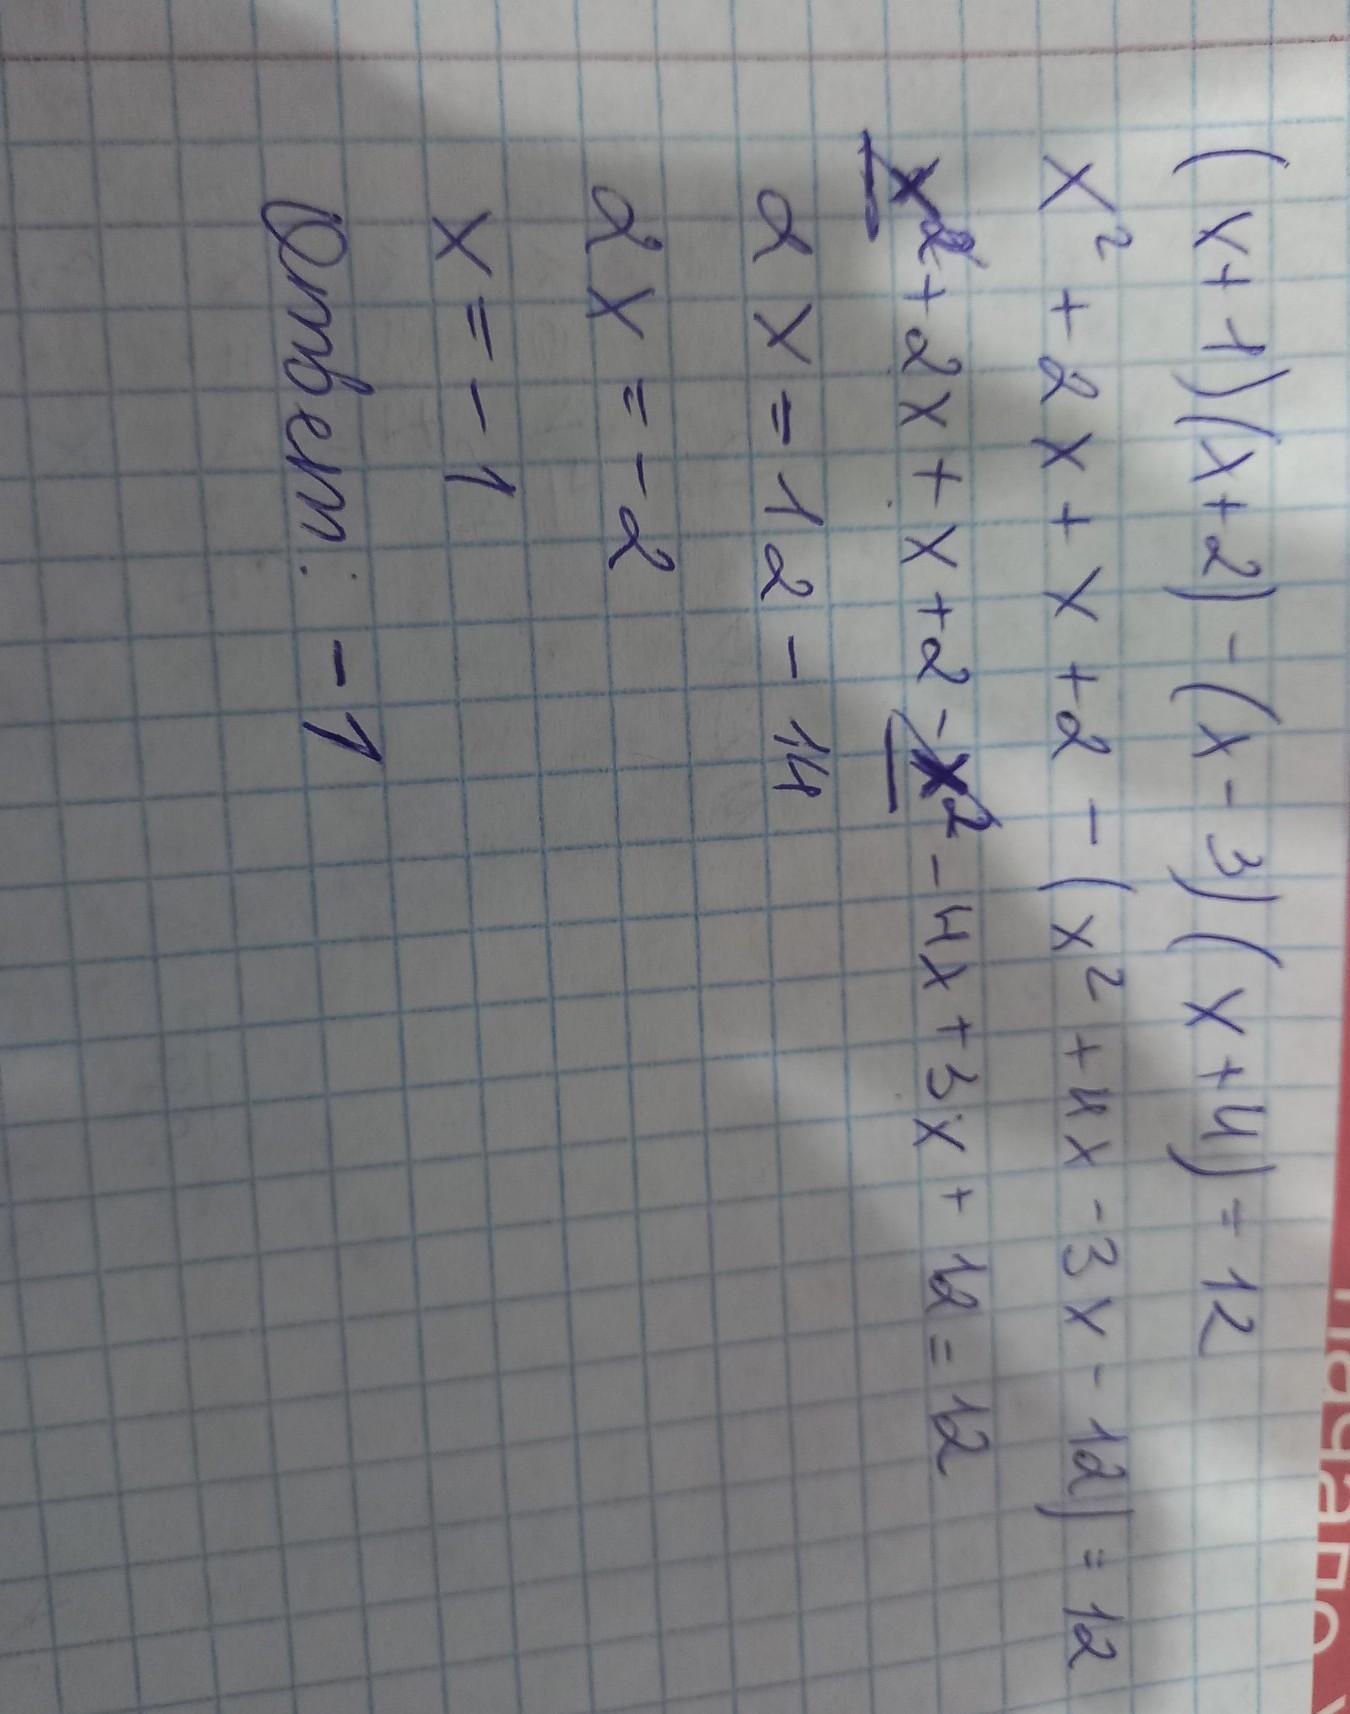 (x+1)(x+2)-(x-3)(x+4)=12
x²+2x+x+2-(x²+4x-3x-12)=12
x²+2x+x+2-x²-4x+3x+12=12
2x=12-14
2x=-2
x=-1
Ответ: -1